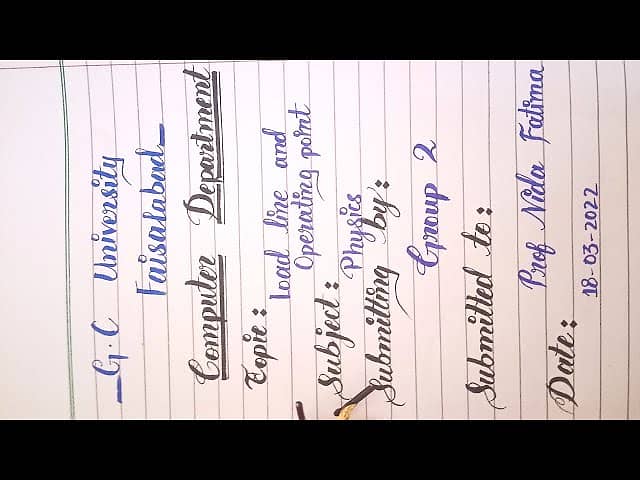 G.C University
Faisalabad
Computer Department
Topic:
Load line and
Operating point
Subject:
Physics
Submitting by:
Group 2
Submitted to:
Prof Nida Fatima
Date:
18-03-2022